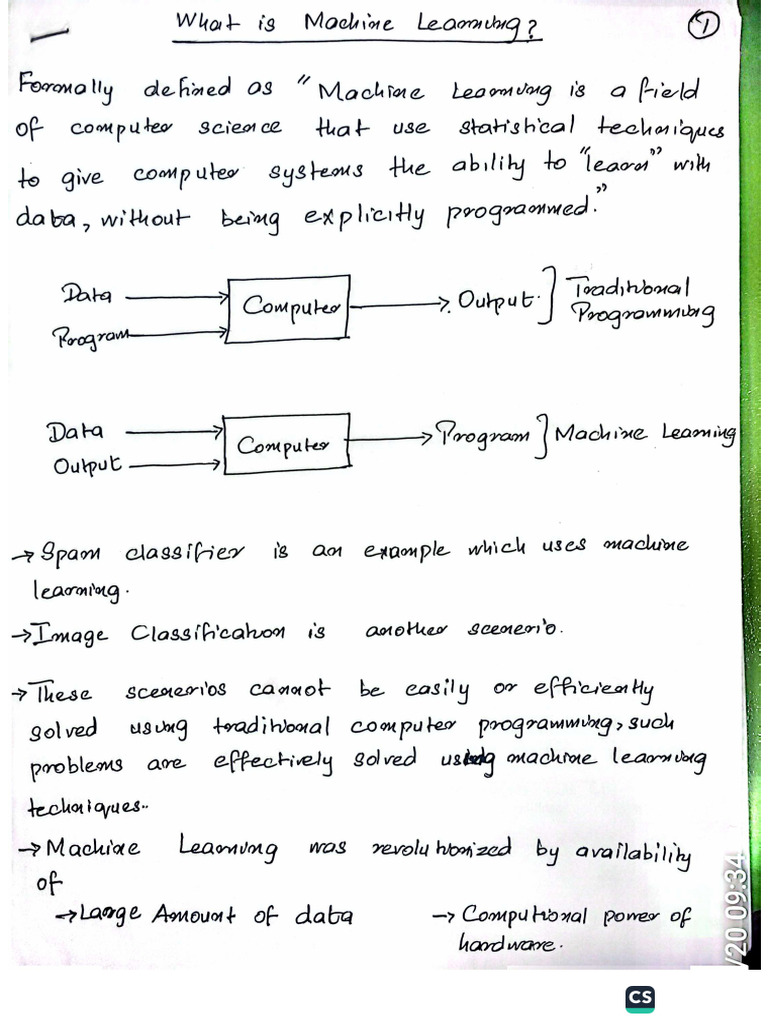 What is Machine Learning?
1
Formally defined as "Machine Learning is a field
of computer science that use statistical techniques
to give computer systems the ability to "learn" with
data, without being explicitly programmed."
Data
Program
Computer
Output.
Traditional
Programming
Data
Output
Computer
Program
Machine Learning
→ Spam classifier is an example which uses machine
learning.
→ Image Classification is another scenerio.
→ These scenerios cannot be easily or efficiently
solved using traditional computer programming, such
problems are effectively solved using machine learning
techniques..
→ Machine Learning was revolutionized by availability
of
→ Large Amount of data → Computional power of
hardware.
/20 09:34
CS